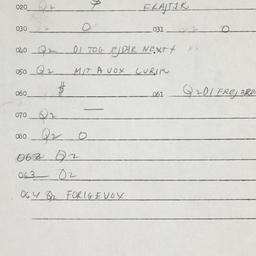 020 Q2 FRAJTJR
030 0 031 0
040 Q2 DI TOG EJDAR NEXT
050 Q2 MIT A VOX LURIN
060 $ 061 Q2DI
070 Q2 —
080 Q2 0
062 Q2
063 Q2
064 Q2 FORIGEVOX